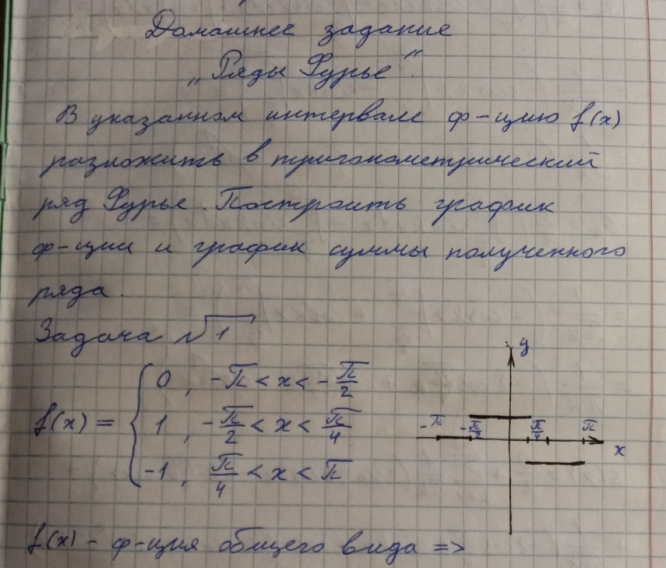 Домашнее задание
„Ряды Фурье".
В указанном интервале ф-цию f(x)
разложить в тригонометрический
ряд Фурье. Построить график
ф-ции и график суммы полученного
ряда.
Задача √1
f(x) = { 0, -π < x < -π/2
1, -π/2 < x < π/4
-1, π/4 < x < π
y
-π -π/2 π/4 π
x
f(x) - ф-ция общего вида =>